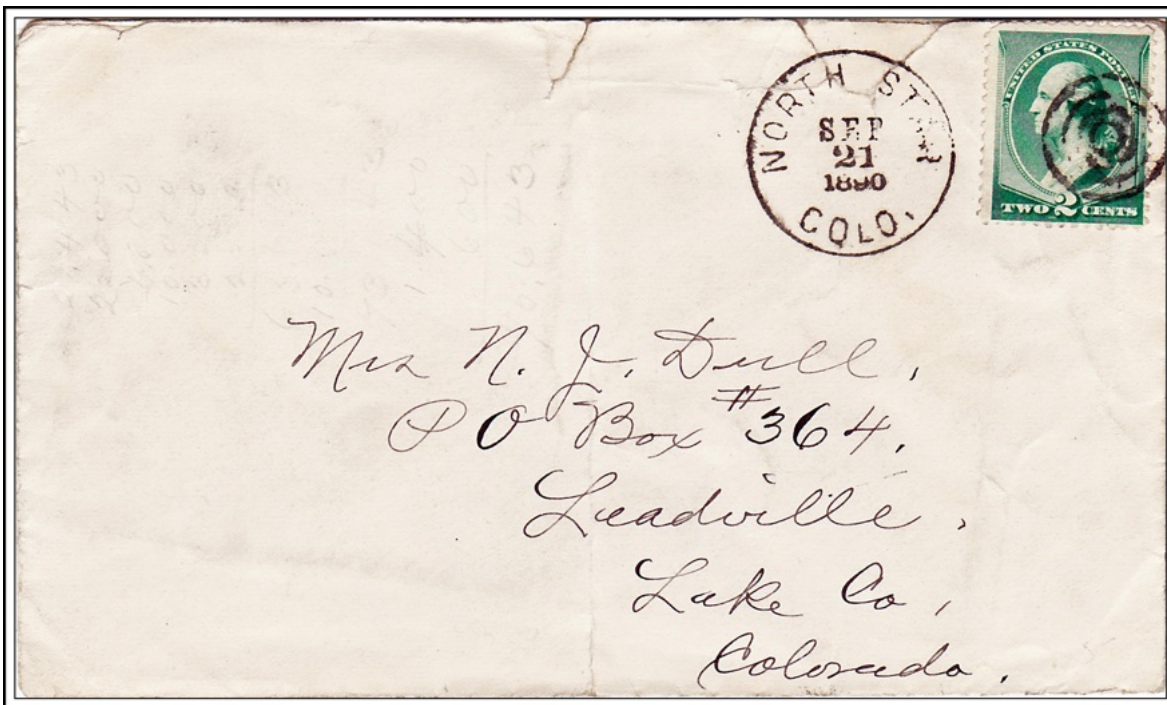 NORTH STAR
SEP
21
1890
COLO.
UNITED STATES POSTAGE
TWO 2 CENTS
Mrs N. J. Dull,
PO Box #364,
Leadville,
Lake Co,
Colorado.